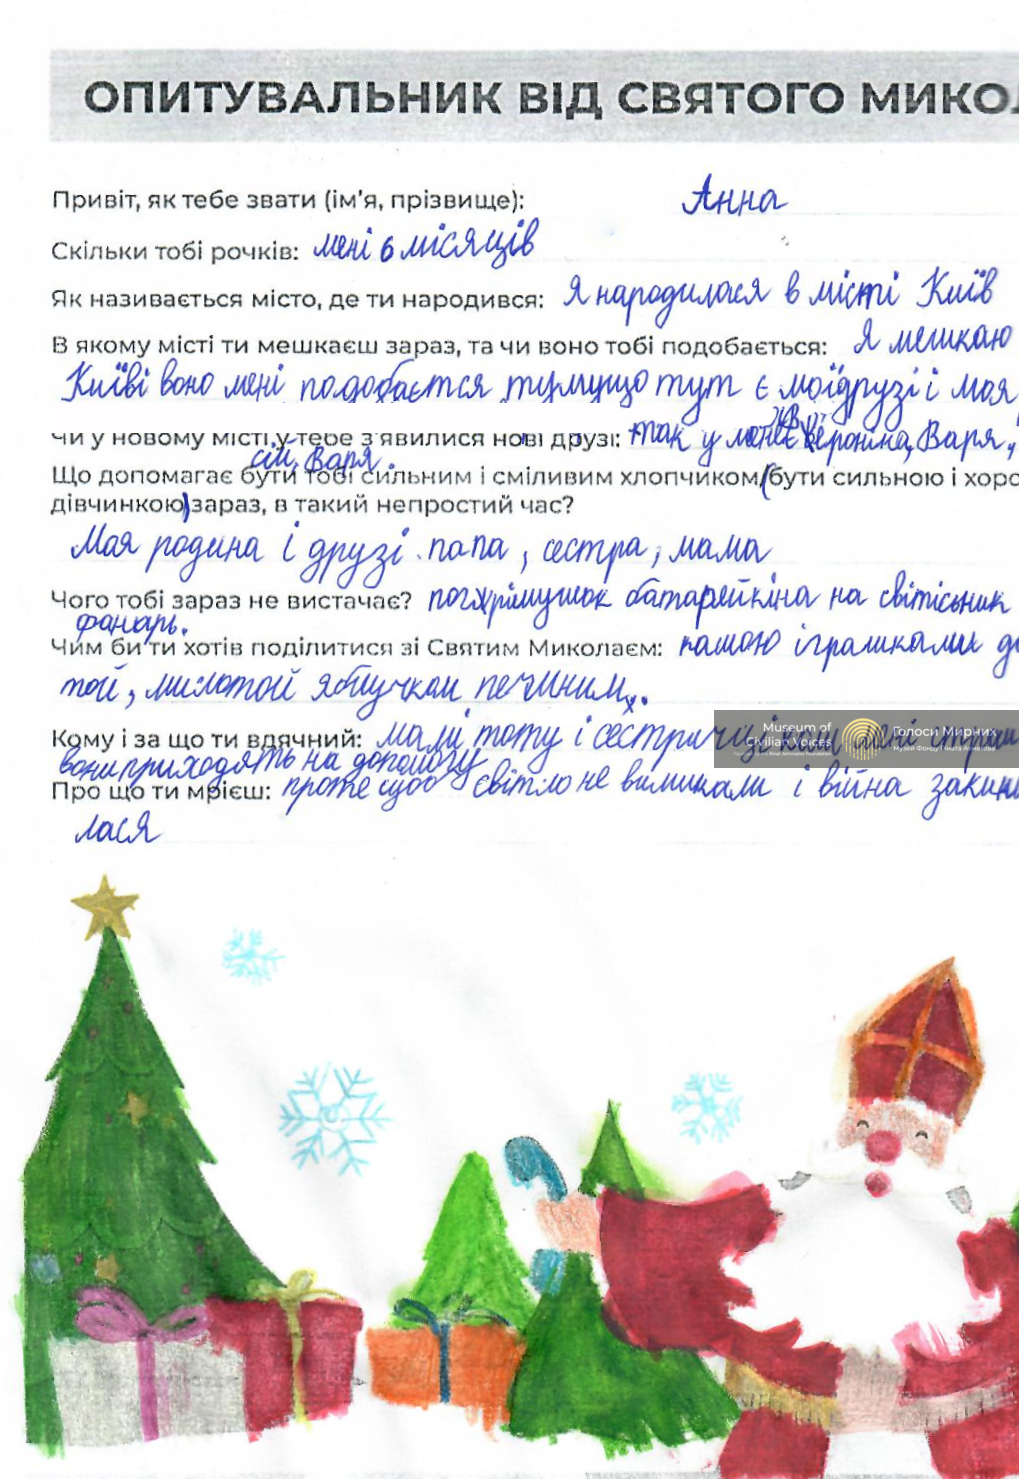 ОПИТУВАЛЬНИК ВІД СВЯТОГО МИКОЛ
Привіт, як тебе звати (ім'я, прізвище): Анна
Скільки тобі рочків: мені 6 місяців
Як називається місто, де ти народився: Я народилася в місті Київ
В якому місті ти мешкаєш зараз, та чи воно тобі подобається: Я мешкаю
Київі воно мені подобається тут є мої друзі і моя
чи у новому місті у тебе з'явилися нові друзі: так у мене є Вероніка, Варя.
Варя.
Що допомагає бути тобі сильним і сміливим хлопчиком/(бути сильною і хоро
дівчинкою) зараз, в такий непростий час?
Моя родина і друзі папа, сестра, мама
Чого тобі зараз не вистачає? на світісьник
фонарь.
Чим би ти хотів поділитися зі Святим Миколаєм: іграшками
той,
Museum of
Civilian Voices
Голоси Мирних
Музей Фонду Ріната Ахметова
Кому і за що ти вдячний:
вони приходять на допомогу
Про що ти мрієш: проте щоб світло не вимикали і війна закін
лася